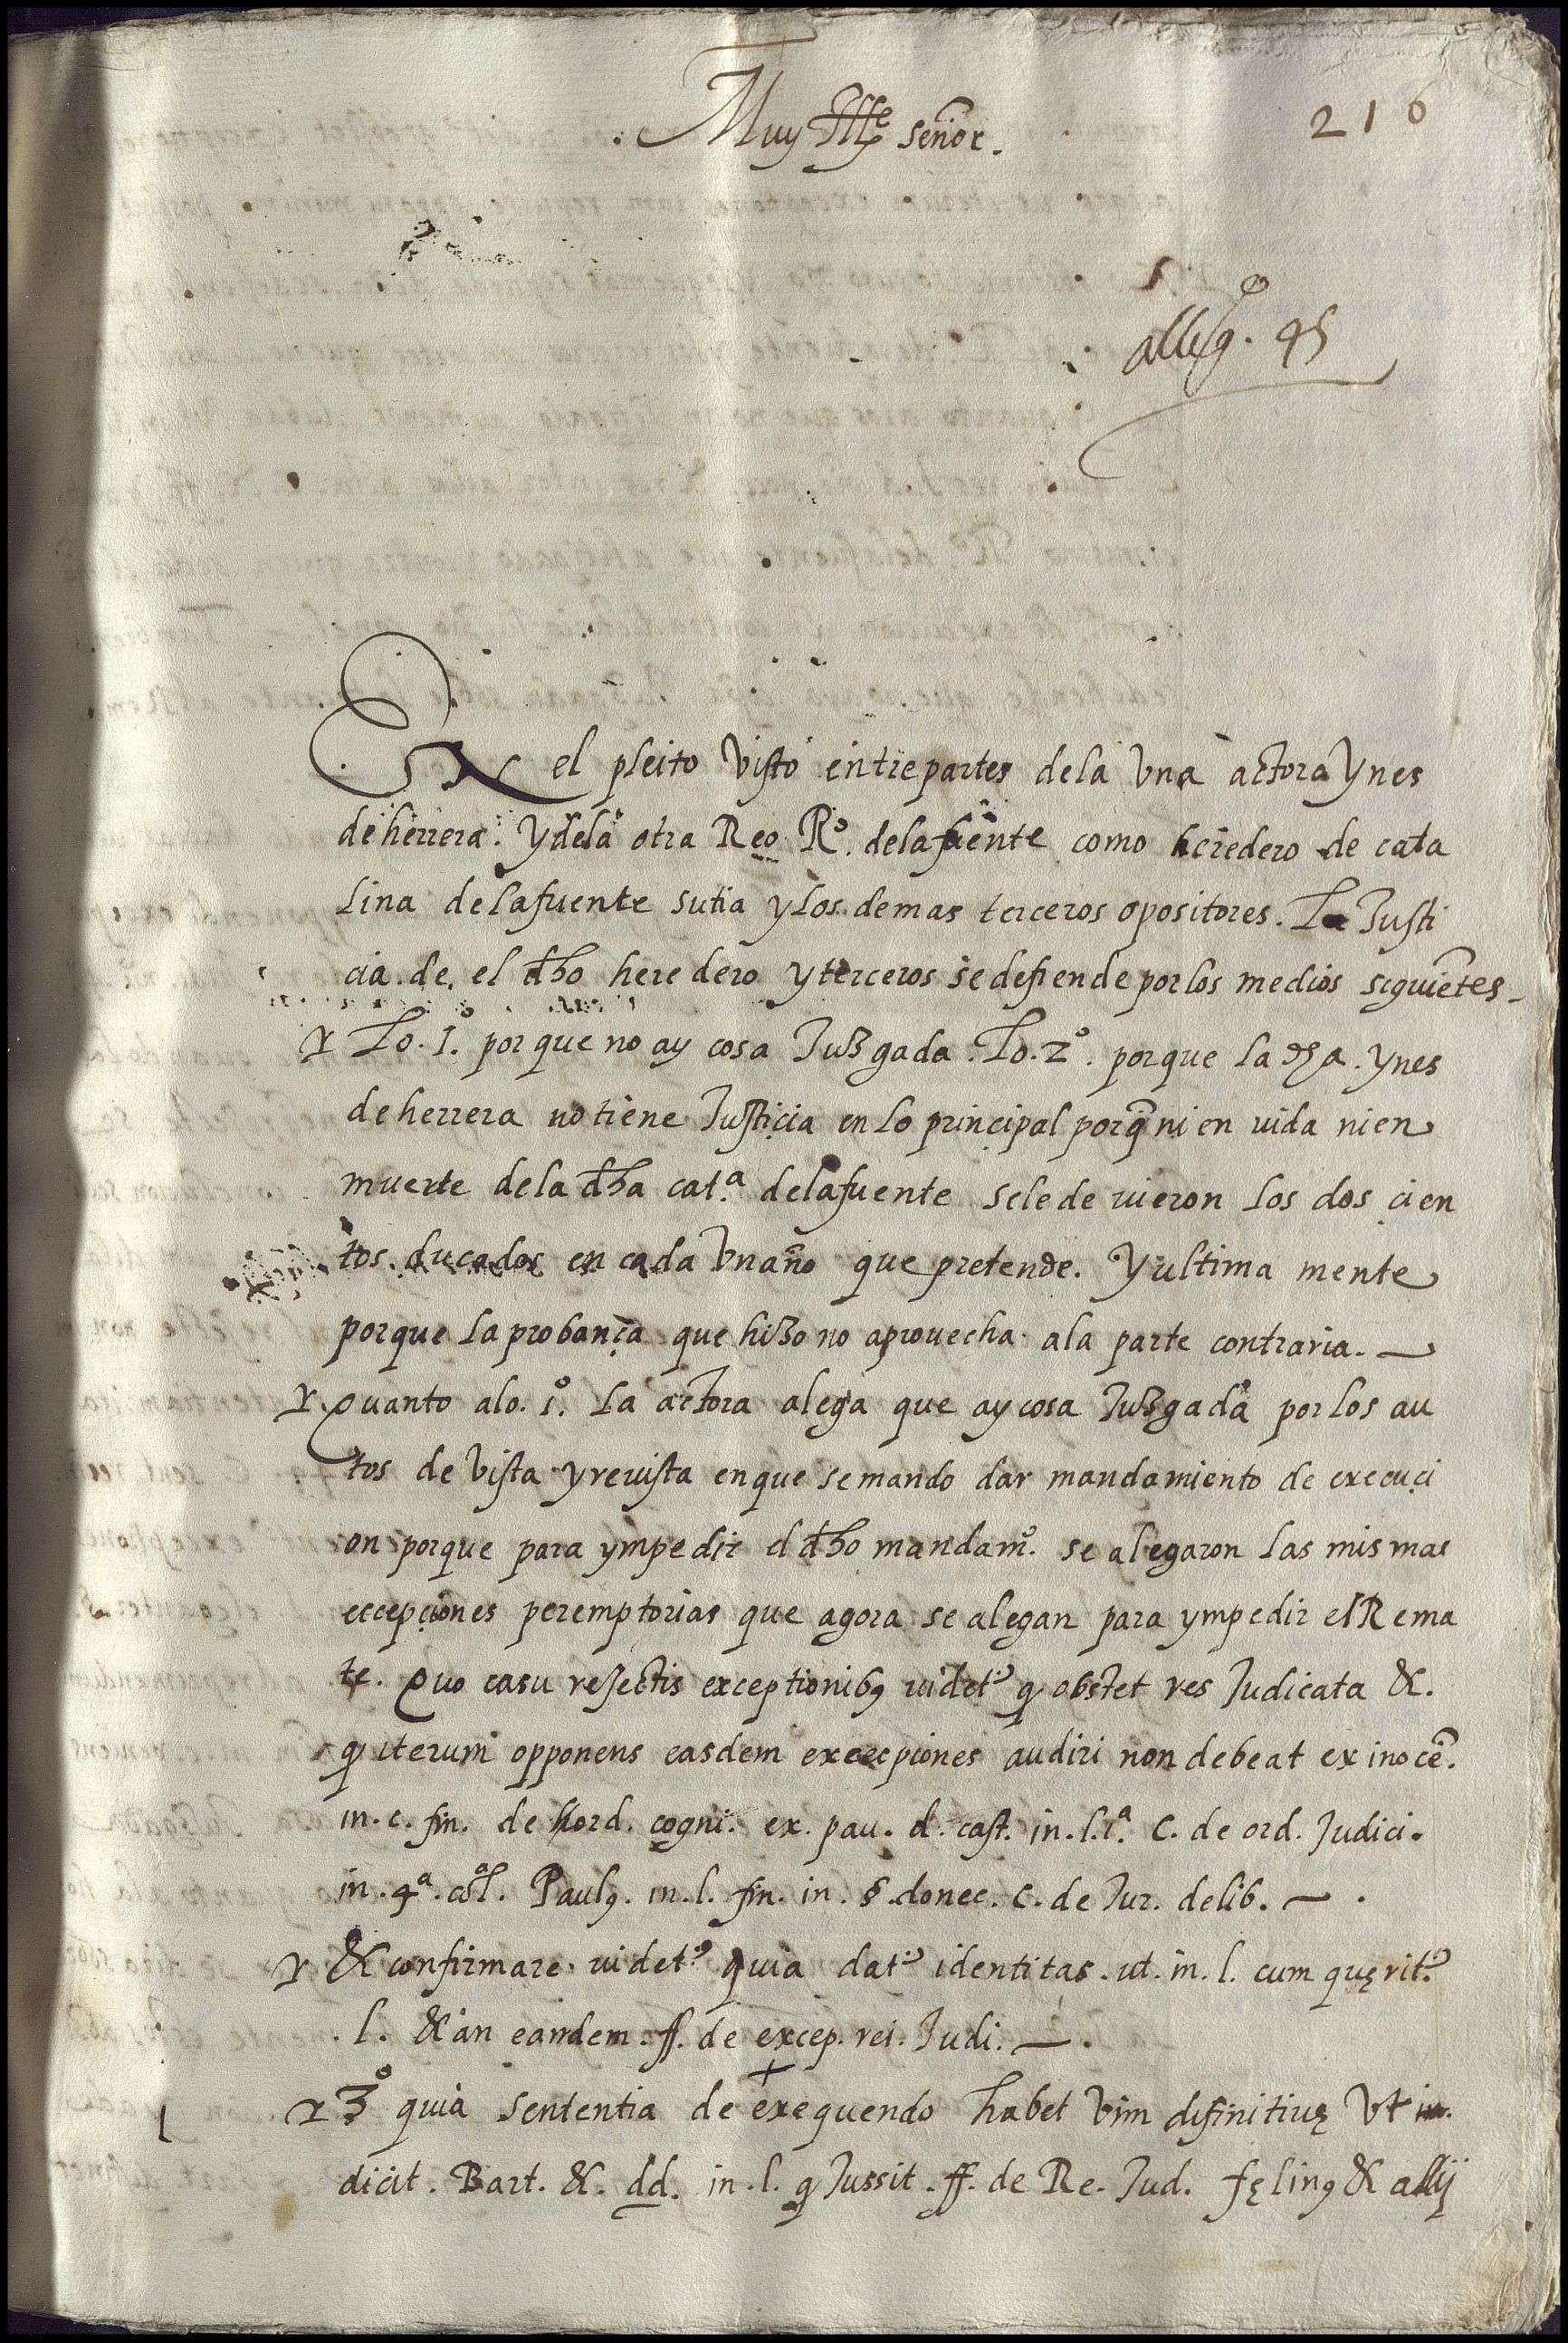 Muy Ille señor.
216
alleg. 45
En el pleito visto entrepartes dela una actora Ynes
deherrera. Y dela otra Reo Rº. delafuente como heredero de cata
lina delafuente sutia y los demas terceros opositores. La Justi
cia de el dho heredero y terceros se defiende por los medios siguiẽtes
Lo. 1º. por que no ay cosa Juzgada. Lo. 2º. porque la dha. Ynes
deherrera no tiene Justicia en lo principal porq̃ ni en uida ni en
muerte dela dha cat.ª delafuente sele de uieron los dos cien
tos ducados en cada unaño que pretende. Y ultima mente
porque la probança que hizo no aprouecha ala parte contraria.
Quanto alo. 1º. La actora alega que ay cosa Juzgada por los au
tos de vista y revista enque se mando dar mandamiento de execuçi
on porque para ympedir el dho mandamº. se alegaron las mismas
eccepçiones peremptorias que agora se alegan para ympedir el Rema
te. Quo casu rejectis exceptionibꝯ uidetᵘʳ ꝙ obstet res Judicata &.
ꝙ iterum opponens easdem excecpciones audiri non debeat ex inocẽ.
in. c. fin. de hord. cogni. ex. pau. d. cast. in. l. 1ª. C. de ord. Judici.
in. 4ª. col. Paulꝯ. in. l. fin. in. §. donec. c. de Jur. delib.
& confirmare uidetᵘʳ quia datᵘʳ identitas. ut. in. l. cum quęritᵘʳ
l. & an eandem. ff. de excep. rei. Judi.
3º quia sententia de exequendo habet vim difinitiuę Vt
dicit. Bart. &. dd. in. l. ꝙ Jussit. ff. de Re. Jud. fęlinꝯ & allij